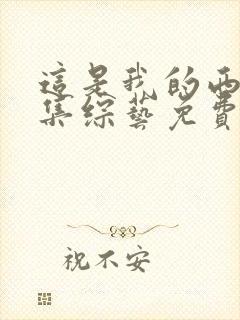 這是我的西
集綜藝免費
祝不安